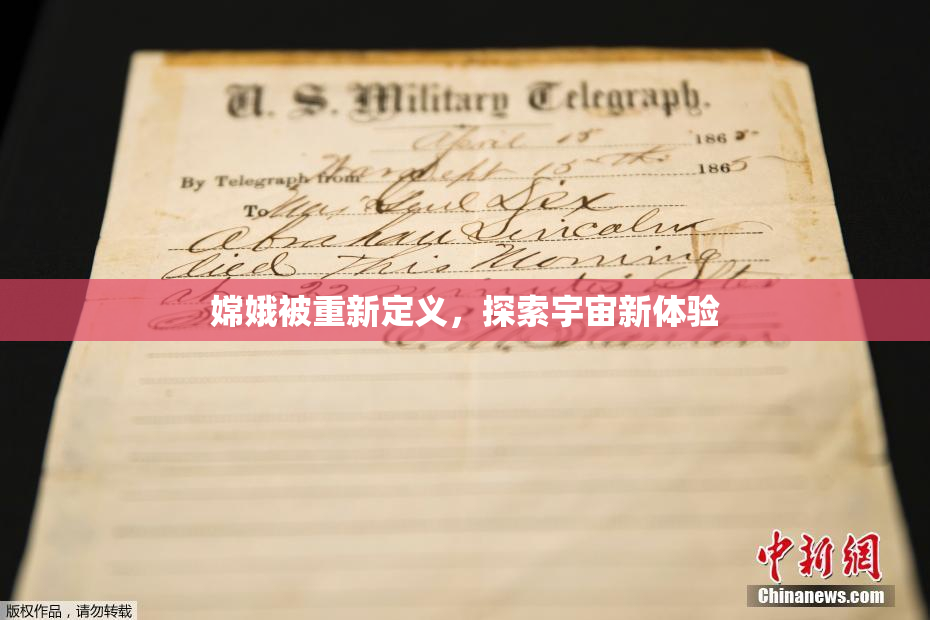 U. S. Military Telegraph.
April 15 1865
By Telegraph from War Dept 15th 1865
To Maj Genl Dix
Abraham Lincoln
died This Morning
at 22 minutes after
嫦娥被重新定义，探索宇宙新体验
E. M. Stanton
中新网
Chinanews.com
版权作品，请勿转载